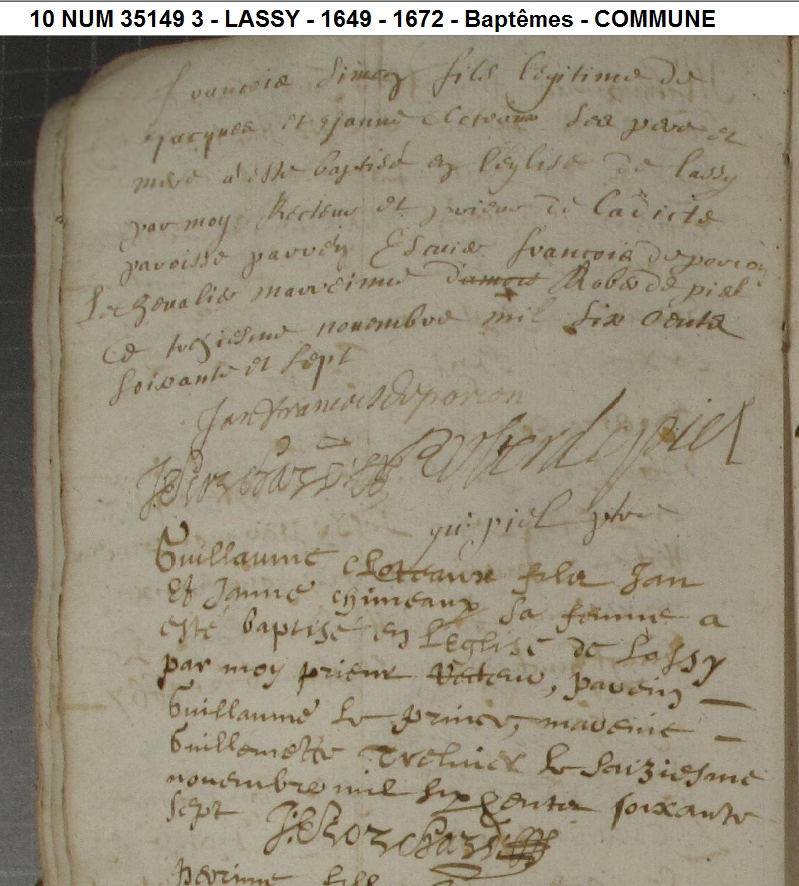 10 NUM 35149 3 - LASSY - 1649 - 1672 - Baptêmes - COMMUNE
francois Simon fils legitime de
Jacques et Janne ses pere et
mere a este baptisé en l'eglise de Lassy
par moy Recteur et prieur de ladicte
paroisse parrein Escuier francois deporcon
Le chevalier marreinne Robe de piel
Ce treziesme novembre mil Six Cents
Soixante et sept
Jan francois deporcon
qu: piel ptre
Guillaume fils Jan
Et Janne chimeaux sa femme a
esté baptisé en L'Eglise de Lassy
par moy prieur Recteur, parein
Guillaume Le prince, mareine
Guillemette Le saiziesme
novembre mil six centz soixante
sept
perrine fille